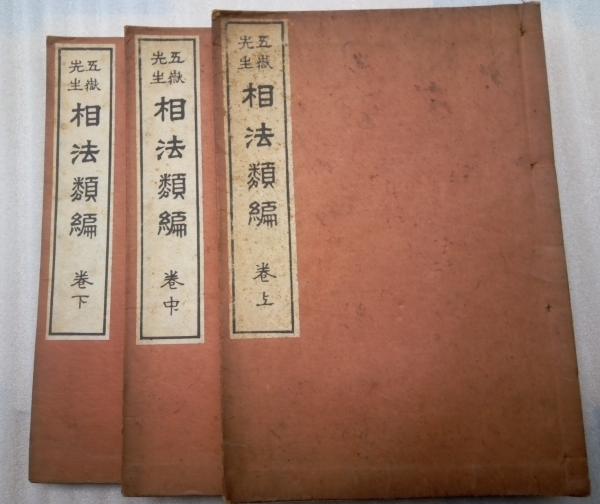 五嶽
先生
相法類編
卷上
五嶽
先生
相法類編
卷中
五嶽
先生
相法類編
卷下